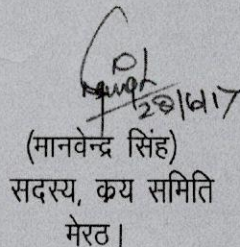 28/6/17
(मानवेन्द्र सिंह)
सदस्य, क्रय समिति
मेरठ।